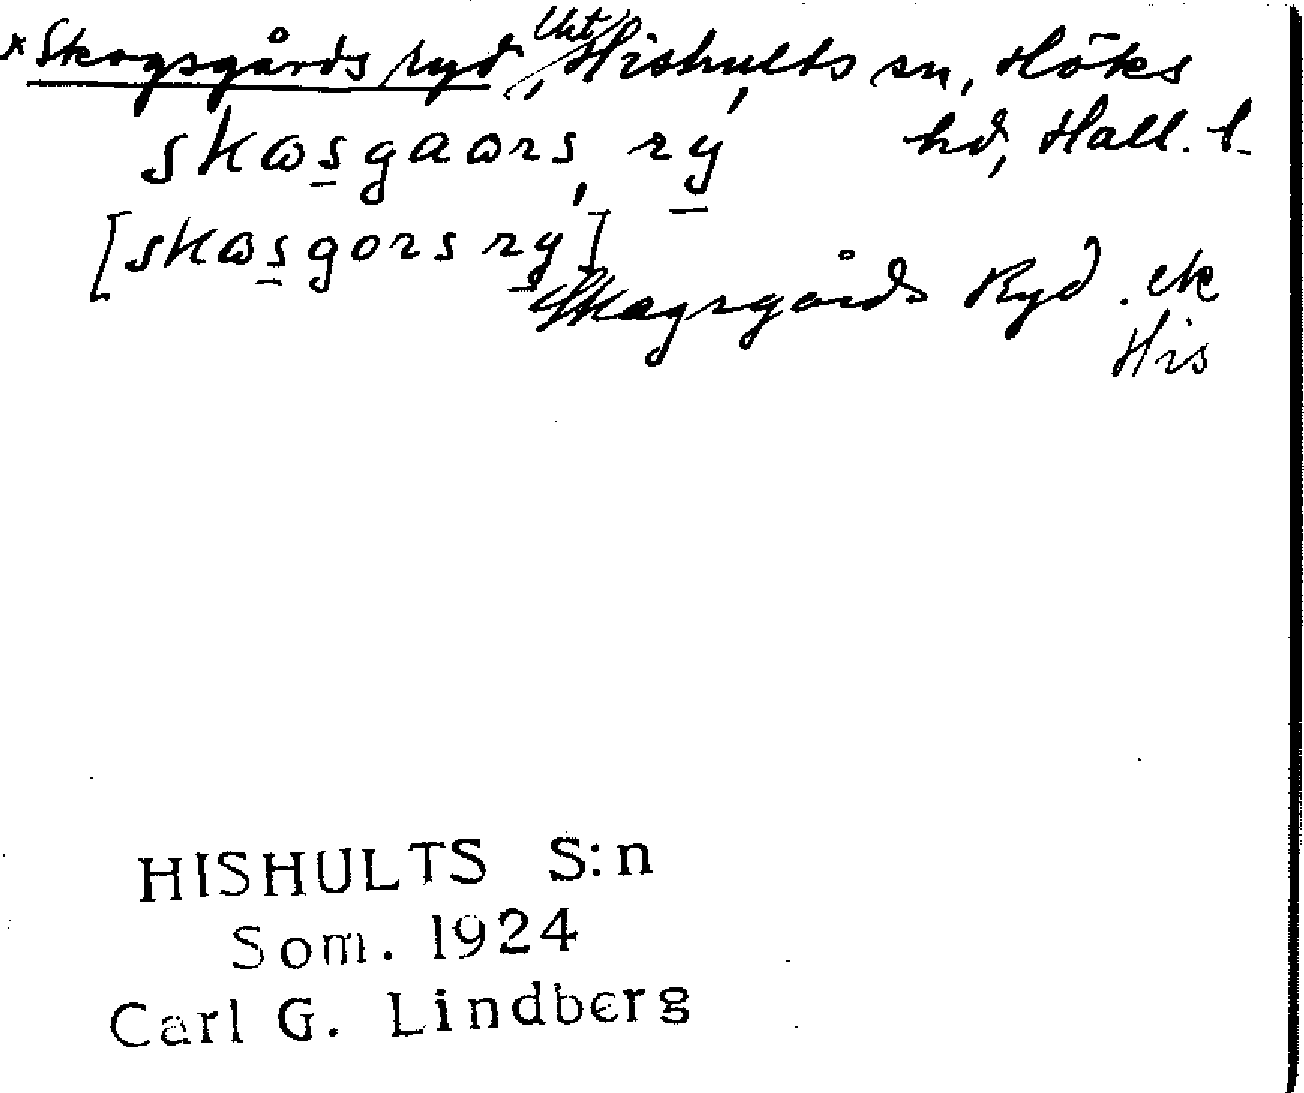 *Skogsgårds ryd, Hishults sn, Höks
hd, Hall. l.
skωsgaωrs, ry
[skωsgors ry]
Skogsgårds Ryd. ek
His
HISHULTS S:n
Som. 1924
Carl G. Lindberg